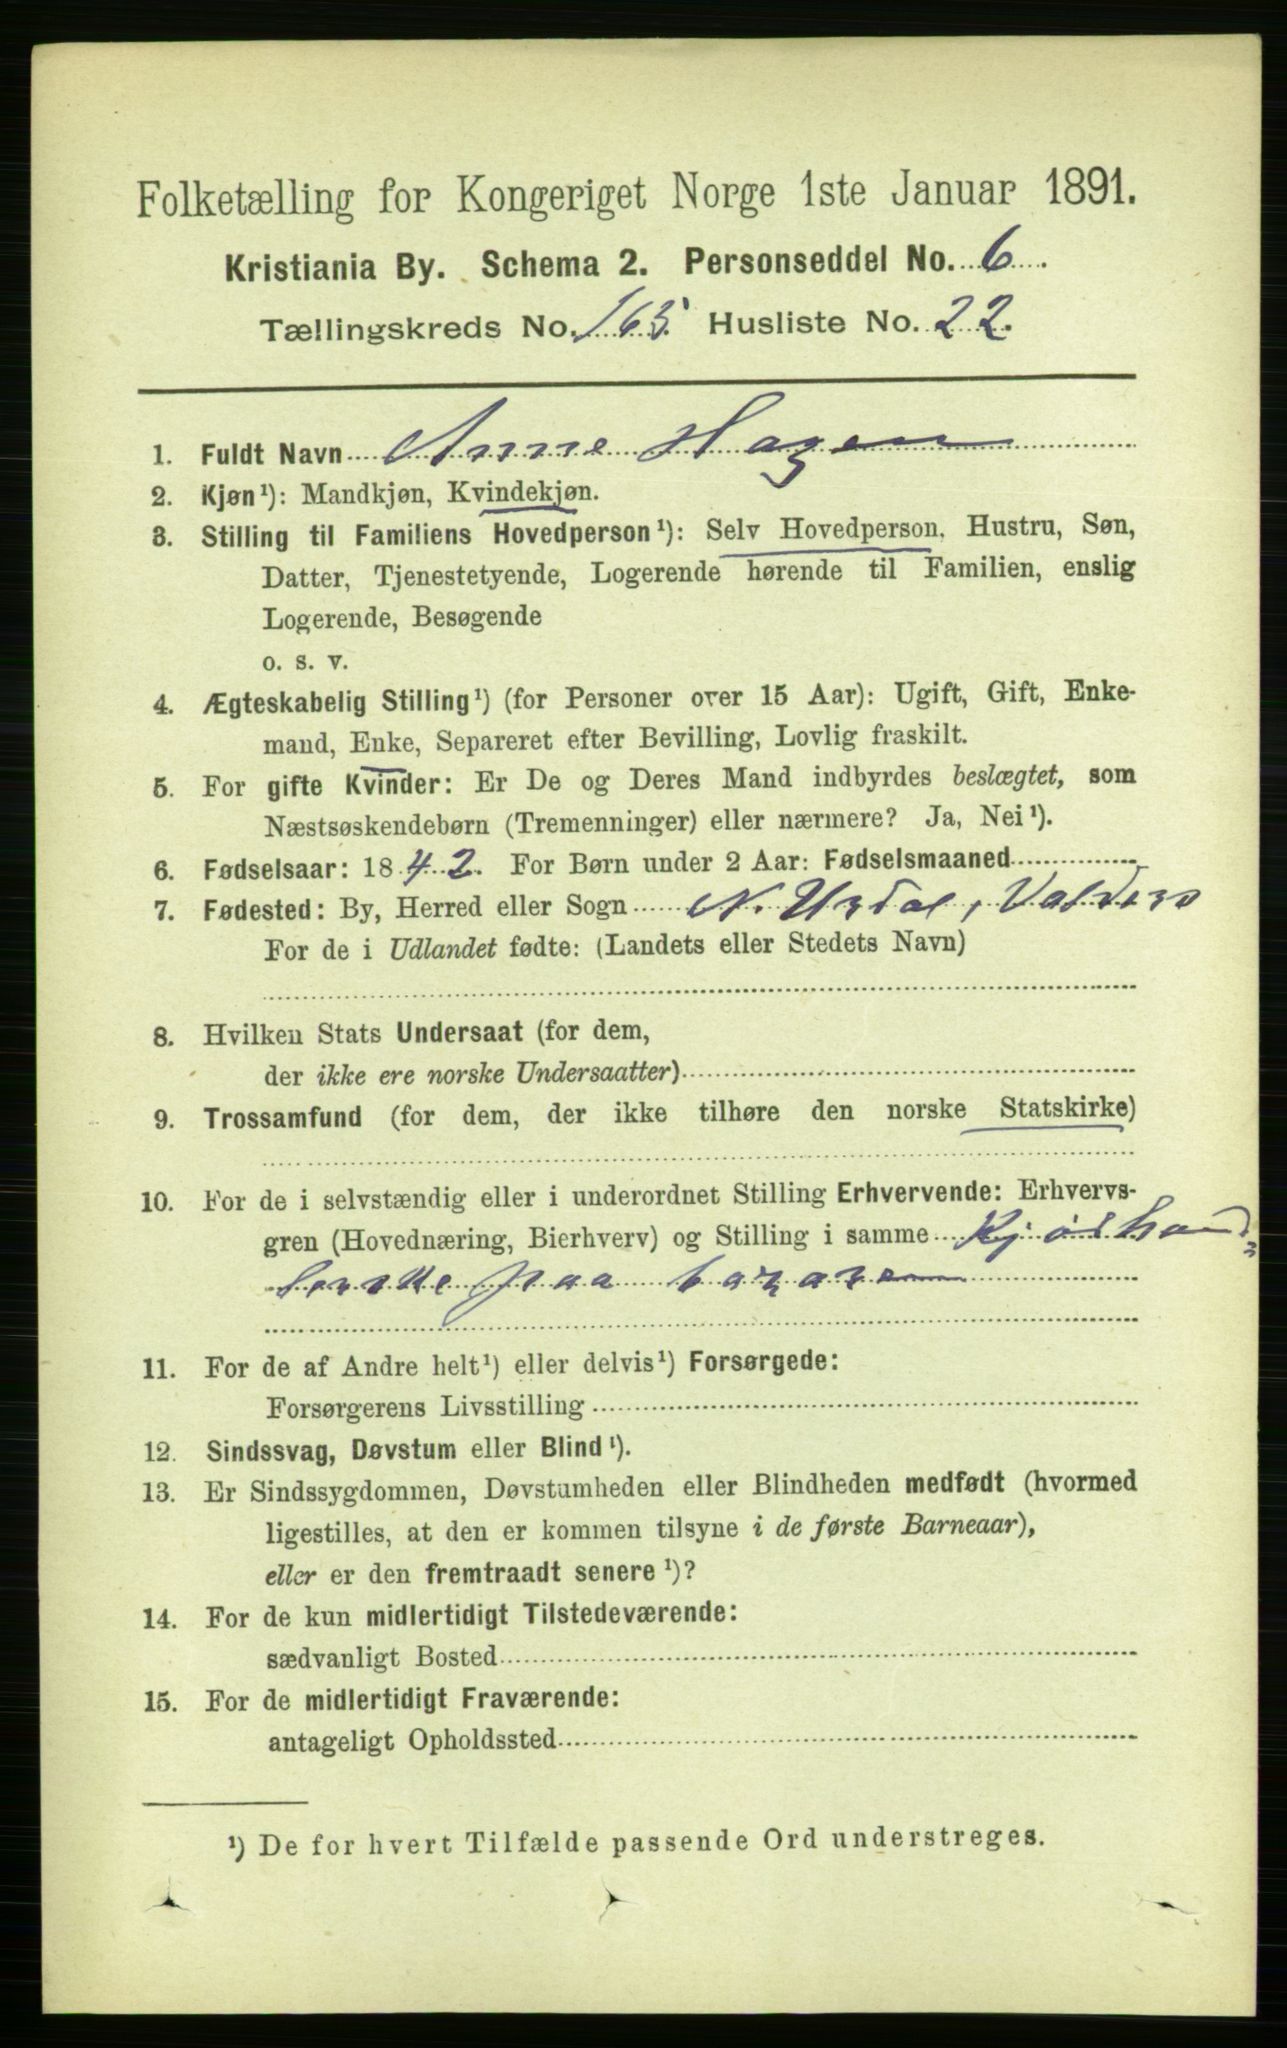 Folketælling for Kongeriget Norge 1ste Januar 1891.
Kristiania By. Schema 2. Personseddel No. 6.
Tællingskreds No. 165. Husliste No. 22.
1. Fuldt Navn Anne Hagen
2. Kjøn¹): Mandkjøn, Kvindekjøn.
3. Stilling til Familiens Hovedperson¹): Selv Hovedperson, Hustru, Søn,
Datter, Tjenestetyende, Logerende hørende til Familien, enslig
Logerende, Besøgende
o. s. v.
4. Ægteskabelig Stilling¹) (for Personer over 15 Aar): Ugift, Gift, Enke-
mand, Enke, Separeret efter Bevilling, Lovlig fraskilt.
5. For gifte Kvinder: Er De og Deres Mand indbyrdes beslægtet, som
Næstsøskendebørn (Tremenninger) eller nærmere? Ja, Nei¹).
6. Fødselsaar: 1842. For Børn under 2 Aar: Fødselsmaaned
7. Fødested: By, Herred eller Sogn N. Urdal, Valders
For de i Udlandet fødte: (Landets eller Stedets Navn)
8. Hvilken Stats Undersaat (for dem,
der ikke ere norske Undersaatter)
9. Trossamfund (for dem, der ikke tilhøre den norske Statskirke)
10. For de i selvstændig eller i underordnet Stilling Erhvervende: Erhvervs-
gren (Hovednæring, Bierhverv) og Stilling i samme Kjødhand
lerske paa bazaren
11. For de af Andre helt¹) eller delvis¹) Forsørgede:
Forsørgerens Livsstilling
12. Sindssvag, Døvstum eller Blind¹).
13. Er Sindssygdommen, Døvstumheden eller Blindheden medfødt (hvormed
ligestilles, at den er kommen tilsyne i de første Barneaar),
eller er den fremtraadt senere¹)?
14. For de kun midlertidigt Tilstedeværende:
sædvanligt Bosted
15. For de midlertidigt Fraværende:
antageligt Opholdssted
¹) De for hvert Tilfælde passende Ord understreges.